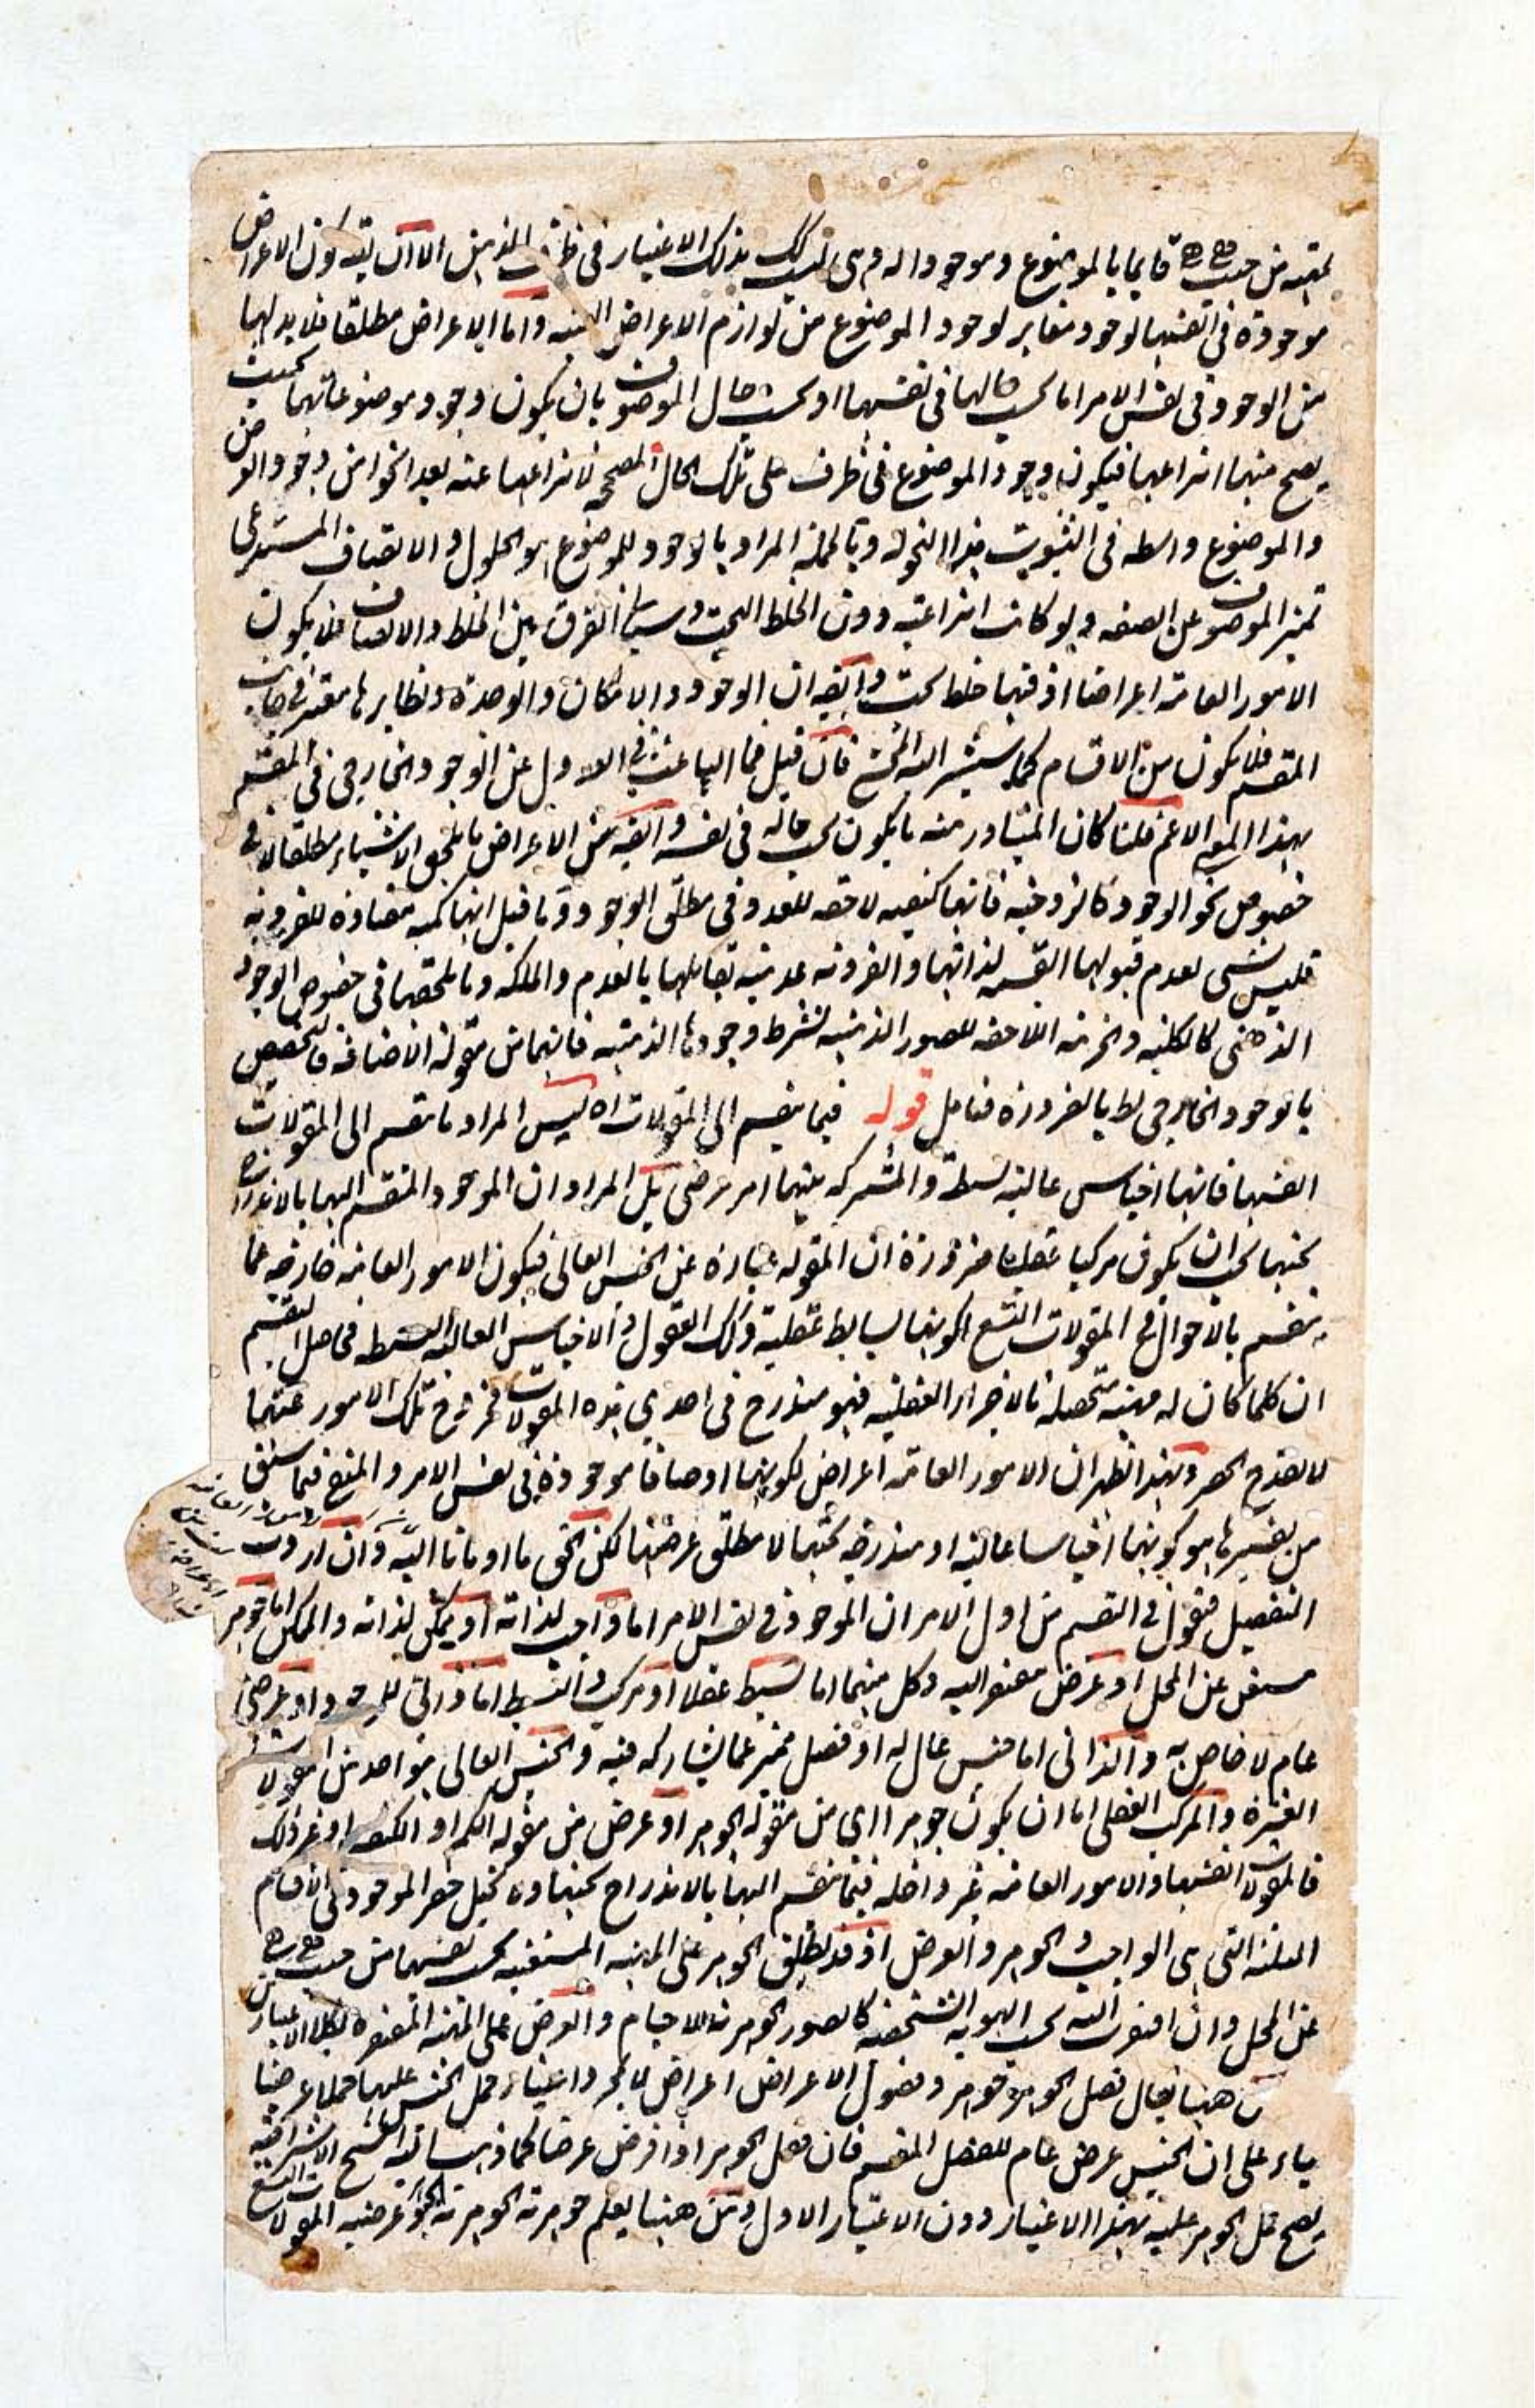 من حيث هي هي قايما بالموضوع وموجودا له وهي ليست كك بذلك الاعتبار في ظرف الذهن الا ان يقه كون الاعراض
موجودة في انفسها لوجود مغاير لوجود الموضوع من لوازم الاعراض العينيه واما الاعراض مطلقا فلا بد لها
من الوجود في نفس الامر اما بحسب حالها في نفسها او بحسب حال الموصوف بان يكون وجود موضوعاتها بحيث
يصح منها انتزاعها فيكون وجود الموضوع في ظرف على تلك الحال المصححه لانتزاعها عنه يعد نحوا من وجود العرض
والموضوع واسطه في الثبوت هذا النحو له وبالجملة المراد بالوجود للموضوع هو الحلول والاتصاف المستدعى
تميز الموصوف عن الصفه ولو كانت انتزاعيه دون الخلط البحت وسياتي الفرق بين الخلط والاتصاف فلا يكون
الامور العامه اعراضا اذ فيها خلط بحت وايضه ان الوجود والامكان والوحدة ونظايرها معتبر في جانب
المقسم فلا يكون من الاقسام كما سيشير اليه المحشى فان قيل فما الباعث في العدول عن الوجود الخارجي في المقسم
بهذا المعنى الاعم قلنا كان المتبادر منه ما يكون بحسب حاله في نفسه وايضه من الاعراض ما يلحق الاشياء مطلقا لا في
خصوص نحو الوجود كالزوجيه فانها كيفيه لاحقه للعدد في مطلق الوجود وما قيل انها كميه مضادة للفرديه
فليس بشى لعدم قبولها القسمه لذاتها والفرديه عدميه تقابلها بالعدم والملكه وما يلحقها في خصوص الوجود
الذهنى كالكليه والجزئيه اللاحقه للصور الذهنيه بشرط وجودها الذهنيه فانهما من مقولة الاضافه فالتخصيص
بالوجود الخارجي بط بالضرورة فتامل قوله فيما ينقسم الى المقولات اه ليس المراد ما تقسم الى المقولات
انفسها فانها اجناس عاليه بسيطه والمشترك بينها امر عرضى بل المراد ان الموجود المنقسم اليها بالاندراج
تحتها يجب ان يكون مركبا عقليا ضرورة ان المقوله عبارة عن الجنس العالى فيكون الامور العامه خارجه عما
ينقسم بالاحوال في المقولات التسع لكونها بسايط عقلية وكذلك الفصول والاجناس العاليه البسيطه فحاصل التقسيم
ان كلما كان له مهيه متحصله بالاجزاء العقليه فهو مندرج في احدى هذه المقولات فخروج تلك الامور عنها
لا يقدح الحصر وبهذا ظهر ان الامور العامه اعراض لكونها اوصافا موجودة في نفس الامر والمنع فيما سبق
من تفسيرها هو كونها اجناسا عاليه او مندرجه تحتها لا مطلق عرضيتها لكن الحق ما اومانا اليه وان اردت
التفصيل فنقول في التقسيم من اول الامر ان الموجود في نفس الامر اما واجب لذاته او ممكن لذاته والممكن اما جوهر
مستغن عن المحل او عرض مفتقر اليه وكل منهما اما بسيط عقلا او مركب والبسيط اما ذاتي للموجود او عرضى
عام لا خاص به والذاتى اما جنس عال له او فصل مميز عما يشاركه فيه والجنس العالى هو احد من المقولات
العشرة والمركب العقلى اما ان يكون جوهرا اى من مقولة الجوهر او عرض من مقوله الكم او الكيف او غير ذلك
فالمقولات انفسها والامور العامه غير داخله فيما ينقسم اليها بالاندراج تحتها ولا يختل حصر الموجود في الاقسام
الثلثه التى هى الواجب والجوهر والعرض اذ قد يطلق الجوهر على المهيه المستغنيه بحسب نفسها من حيث هي هي
عن المحل وان افتقرت اليه بحسب الهويه الشخصيه كالصور الجوهريه للاجسام والعرض على المهيه المفتقره بكلا الاعتبارين
من هنا يقال فصل الجوهر جوهر وفصول الاعراض اعراض لا بمجرد اعتبار حمل الجنس عليها حملا عرضيا
بناء على ان الجنس عرض عام للفصل المقسم فان فصل الجوهر اذا فرض عرضا كما ذهب اليه الشيخ الاشراقيه
يصح حمل الجوهر عليه بهذا الاعتبار دون الاعتبار الاول ومن هنا يعلم جوهريه الجوهريه وعرضيه المقولات التسع